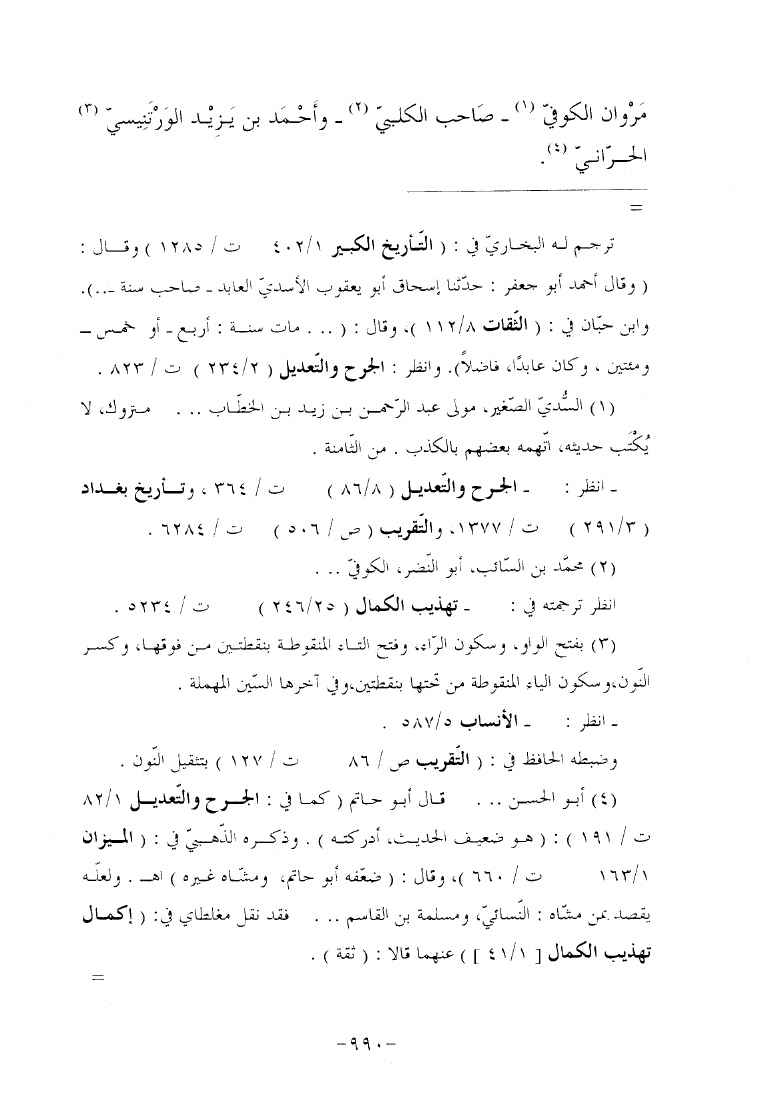 مَرْوان الكوفيّ (١) ـ صَاحب الكلبيّ (٢) ـ وأَحْمَد بن يَزِيْد الوَرْتَنِيسيّ (٣)
الحرّانيّ (٤).
=
ترجم له البخاريّ في : ( التّأريخ الكبير ٤٠٢/١ ت / ١٢٨٥ ) وقال :
( وقال أحمد أبو جعفر : حدّثنا إسحاق أبو يعقوب الأسديّ العابد ـ صاحب سنة ـ..).
وابن حبّان في : ( الثّقات ١١٢/٨ )، وقال : ( ... مات سنة : أربع ـ أو خمس ـ
ومئتين ، وكان عابدًا، فاضلاً). وانظر : الجرح والتّعديل ( ٢٣٤/٢ ) ت / ٨٢٣ .
(١) السُّديّ الصّغير، مولى عبد الرّحمن بن زيد بن الخطّاب ... متروك، لا
يُكْتَب حديثه، اتّهمه بعضهم بالكذب . من الثّامنة .
ـ انظر : ـ الجرح والتّعديل ( ٨٦/٨ ) ت / ٣٦٤ ، وتأريخ بغداد
( ٢٩١/٣ ) ت / ١٣٧٧، والتّقريب ( ص / ٥٠٦ ) ت / ٦٢٨٤ .
(٢) محمّد بن السّائب، أبو النّضر، الكوفيّ ...
انظر ترجمته في : ـ تهذيب الكمال ( ٢٤٦/٢٥ ) ت / ٥٢٣٤ .
(٣) بفتح الواو، وسكون الرّاء، وفتح التاء المنقوطة بنقطتين من فوقها، وكسر
النّون،وسكون الياء المنقوطة من تحتها بنقطتين،وفي آخرها السّين المهملة .
ـ انظر : ـ الأنساب ٥٨٧/٥ .
وضبطه الحافظ في : ( التّقريب ص / ٨٦ ت / ١٢٧ ) بتثقيل النّون .
(٤) أبو الحسن ... قال أبو حاتم ( كما في : الجرح والتّعديل ٨٢/١
ت / ١٩١ ) : ( هو ضعيف الحديث، أدركته ) . وذكره الذّهبيّ في : ( الميزان
١٦٣/١ ت / ٦٦٠ )، وقال : ( ضعّفه أبو حاتم، ومشّاه غيره ) اهـ . ولعلّه
يقصد بمن مشّاه : النّسائيّ، ومسلمة بن القاسم ... فقد نقل مغلطاي في: ( إكمال
تهذيب الكمال [ ٤١/١ ] ) عنهما قالا : ( ثقة ) .
=
-٩٩٠-